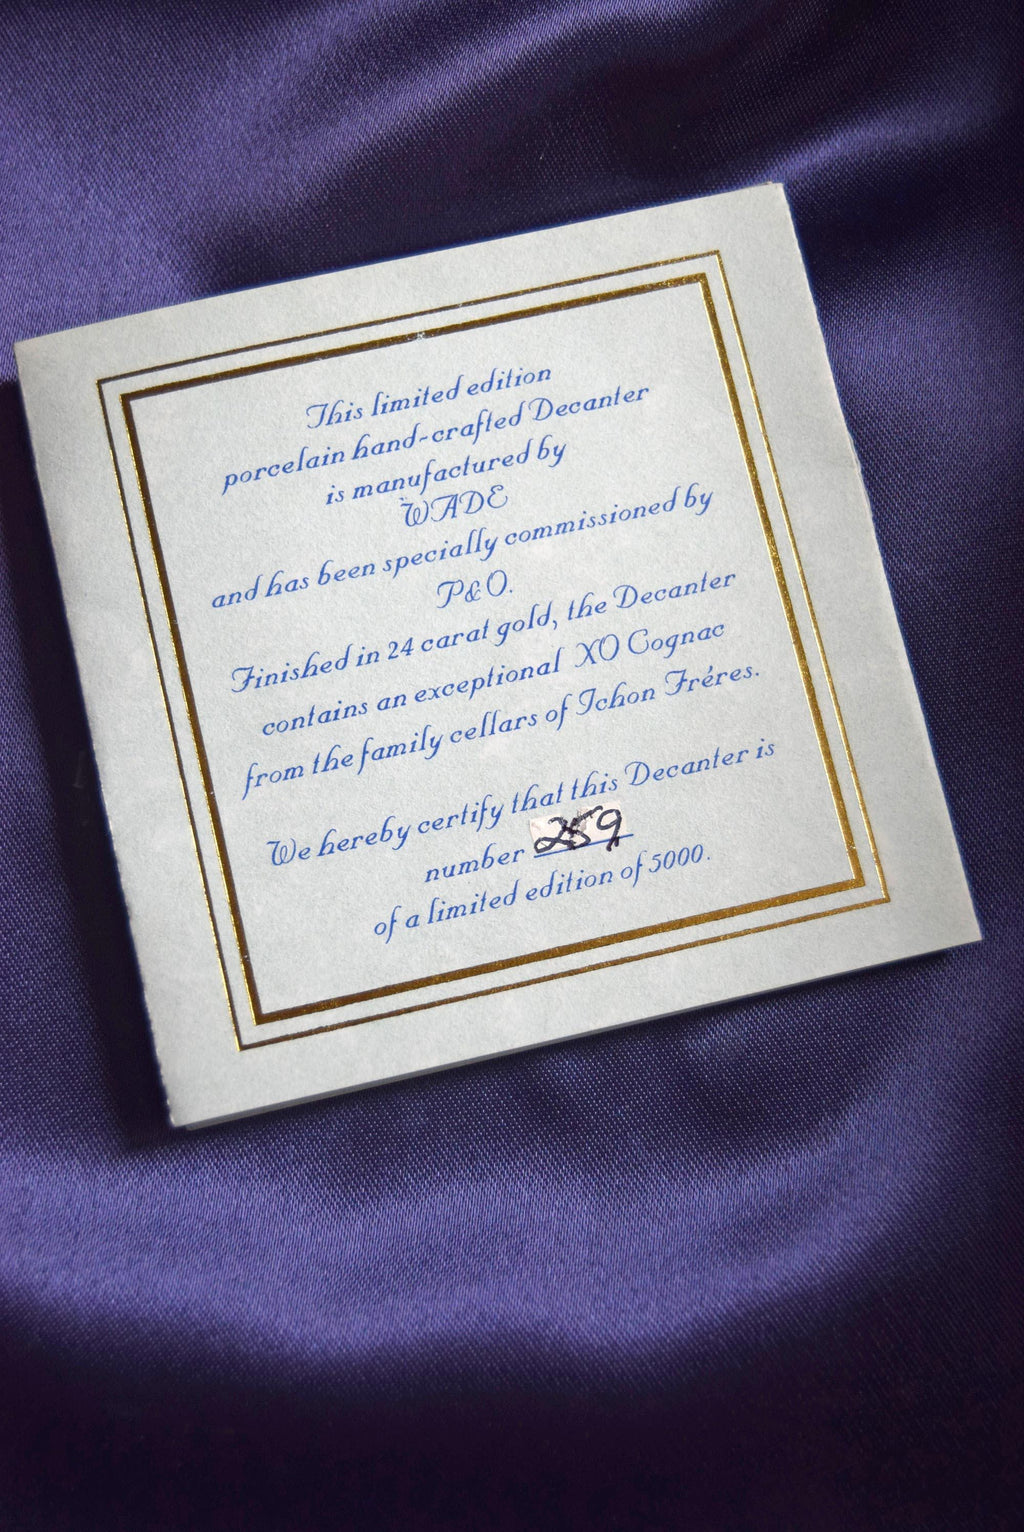 This limited edition
porcelain hand-crafted Decanter
is manufactured by
WADE
and has been specially commissioned by
P&O.
Finished in 24 carat gold, the Decanter
contains an exceptional XO Cognac
from the family cellars of Ichon Fréres.
We hereby certify that this Decanter is
number 259
of a limited edition of 5000.